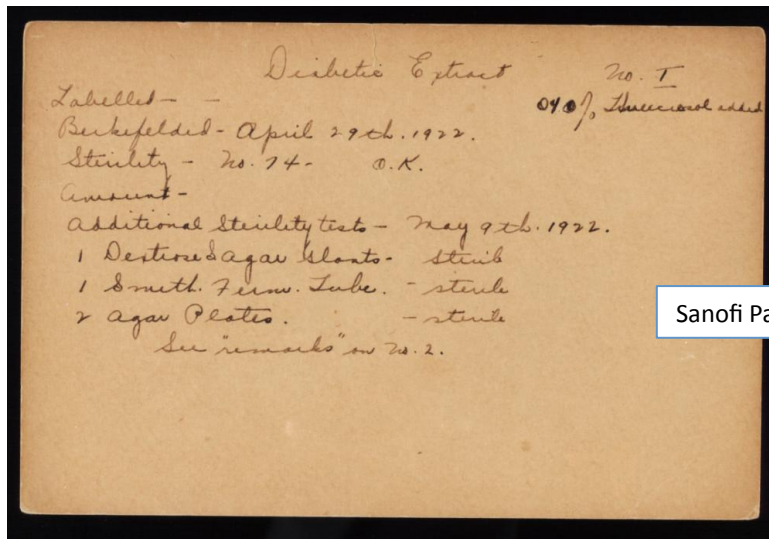 Diabetic Extract No. I
Labelled - -
040% Tricresol added
Berkefelded - April 29th. 1922.
Sterility - No. 74 - O.K.
Amount -
Additional Sterility tests - May 9th. 1922.
1 Dextrose agar slants - steril
1 Smith. Ferm. Tube. - sterile
2 agar Plates. - sterile
See "remarks" on No. 2.
Sanofi Pa